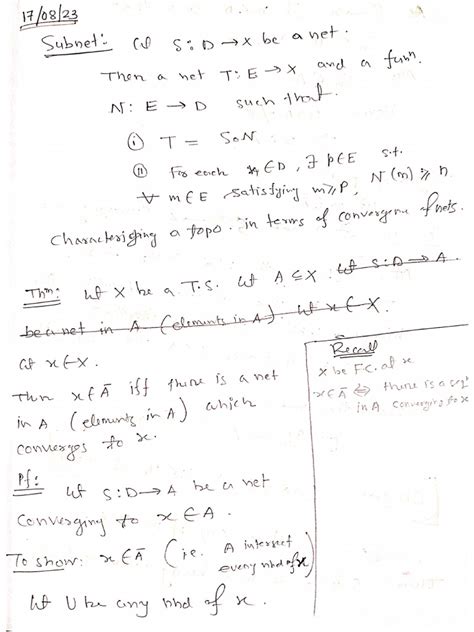 17/08/23
Subnet:- Let S: D → X be a net.
Then a net T: E → X and a funⁿ.
N: E → D such that.
(i) T = SoN
(ii) For each n ∈ D, ∃ p ∈ E s.t.
∀ m ∈ E, satisfying m ≥ P, N(m) ≥ n
Characterizing a topo. in terms of convergence of nets.
Thm: Let X be a T.S. Let A ⊆ X. Let S: D → A.
be a net in A (elements in A). Let x ∈ X.
Let x ∈ X.
Then x ∈ Ā iff there is a net
in A (elements in A) which
converges to x.
Recall
X be F.C. at x
x ∈ Ā ⇔ there is a seqⁿ
in A converging to x
Pf: Let S: D → A be a net
Converging to x ∈ A.
To show: x ∈ Ā (i.e. A intersect
every nbd of x)
Let U be any nbd of x.